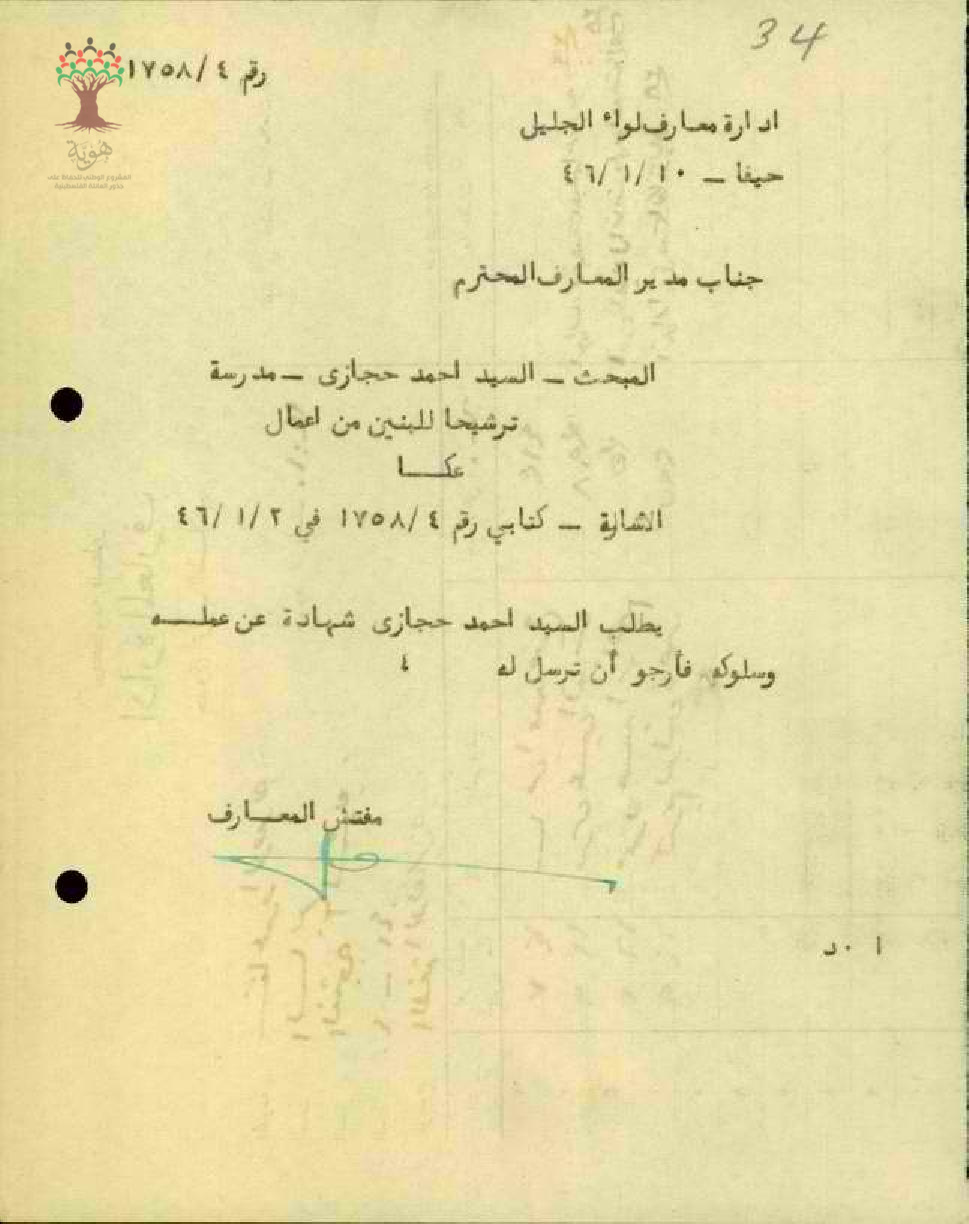 34
رقم ١٧٥٨/٤
هوية
المشروع الوطني للحفاظ على
جذور العائلة الفلسطينية
ادارة معارف لواء الجليل
حيفا – ٤٦/١/١٠
جناب مدير المعارف المحترم
المبحث – السيد احمد حجازى – مدرسة
ترشيحا للبنين من اعمال
عكـــا
الاشارة – كتابي رقم ١٧٥٨/٤ في ٤٦/١/٢
يطلب السيد احمد حجازى شهادة عن عملـــه
وسلوكه فأرجو أن ترسل له
مفتش المعـــارف
ا ٠د